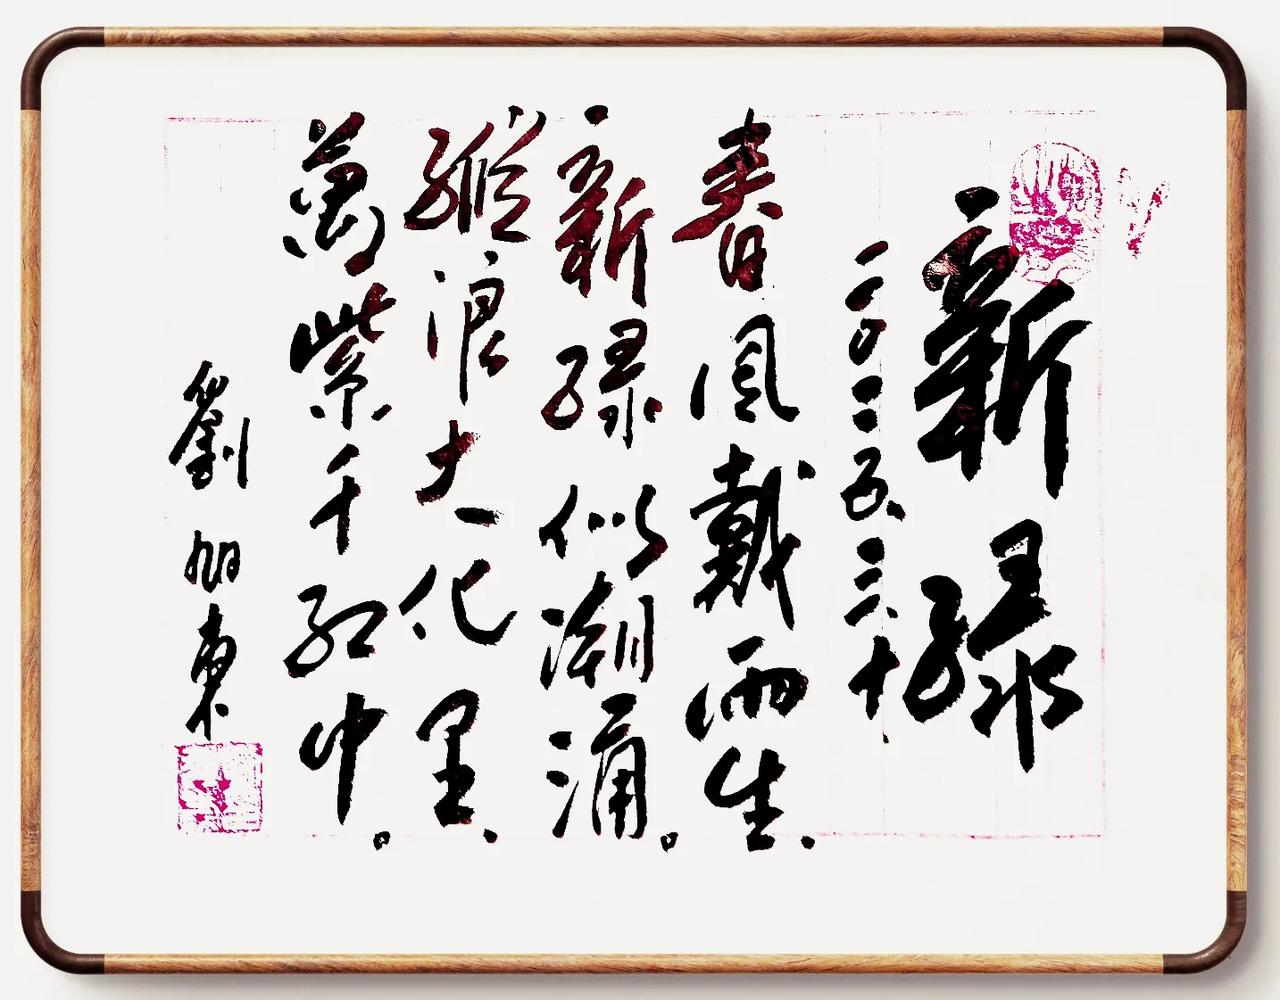 新绿
二〇二五.三.十
春風戴雨生.
新绿似潮涌。
縱浪大化里.
萬紫千红中。
劉旭東